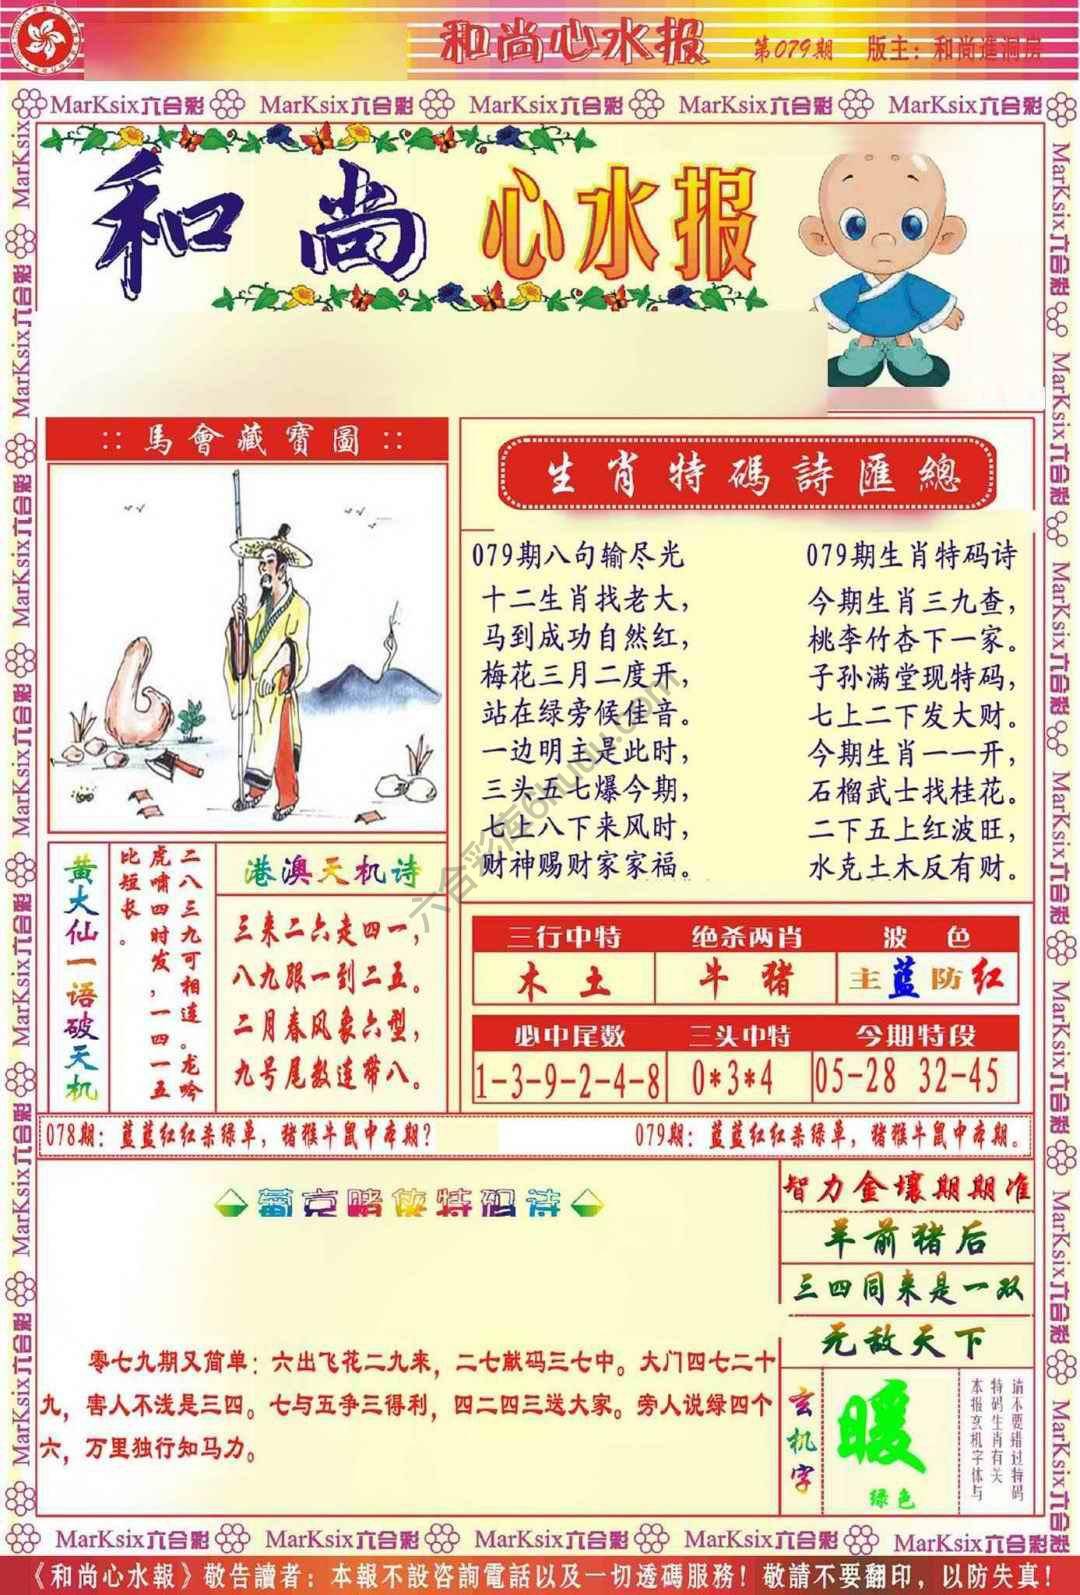 和尚心水报 第079期 版主：和尚進洞房
MarKsix六合彩 MarKsix六合彩 MarKsix六合彩 MarKsix六合彩 MarKsix六合彩
和尚 心水报
::馬會藏寶圖::
生肖特碼詩匯總
079期八句输尽光
十二生肖找老大，
马到成功自然红，
梅花三月二度开，
站在绿旁候佳音。
一边明主是此时，
三头五七爆今期，
七上八下来风时，
财神赐财家家福。
079期生肖特码诗
今期生肖三九查，
桃李竹杏下一家。
子孙满堂现特码，
七上二下发大财。
今期生肖一一开，
石榴武士找桂花。
二下五上红波旺，
水克土木反有财。
六合彩库6huuu.com
黄大仙一语破天机
二八三九可相连。龙吟
虎啸四时发，一四一五
比短长。
港澳天机诗
三来二六走四一，
八九跟一到二五。
二月春风象六型，
九号尾数连带八。
三行中特 绝杀两肖 波色
木土 牛猪 主蓝防红
必中尾数 三头中特 今期特段
1-3-9-2-4-8 0*3*4 05-28 32-45
078期：蓝蓝红红杀绿单，猪猴牛鼠中本期？
079期：蓝蓝红红杀绿单，猪猴牛鼠中本期。
葡京赌侠特码诗
零七九期又简单：六出飞花二九来，二七献码三七中。大门四七二十
九，害人不浅是三四。七与五争三得利，四二四三送大家。旁人说绿四个
六，万里独行知马力。
智力金壤期期准
羊前猪后
三四同来是一双
无敌天下
玄机字
暖
绿色
请不要错过特码
特码生肖有关
本报玄机字体与
MarKsix六合彩 MarKsix六合彩 MarKsix六合彩 MarKsix六合彩 MarKsix六合彩
《和尚心水報》敬告讀者：本報不設咨詢電話以及一切透碼服務！敬請不要翻印，以防失真！